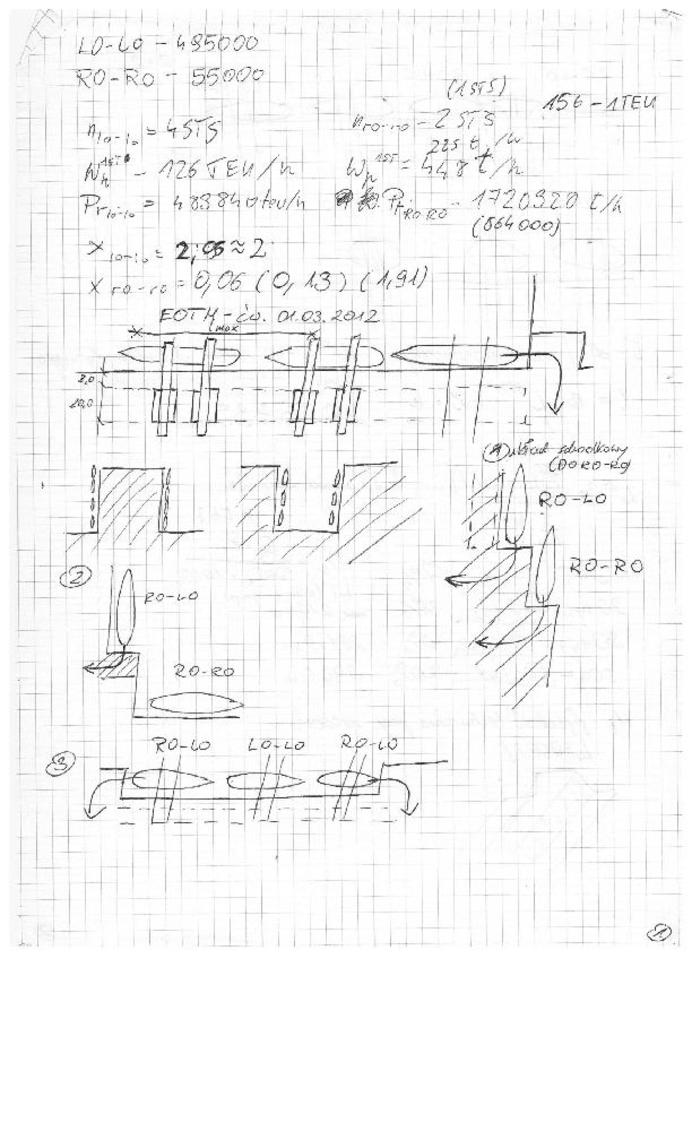 LO-LO - 495000
RO-RO - 55000
(1STS)
156 - 1TEU
n lo-lo = 4STS
n ro-ro - 2STS
225 t/h
1STS - 126 TEU/h
Wp 1ST = 448 t/h
Pr lo-lo = 483840 teu/h
Pr RO RO - 1720320 t/h
(864000)
X lo-lo = 2,05 ≈ 2
X ro-ro = 0,06 (0,13) (1,91)
01.03.2012
max
2,0
20,0
(1) układ schodkowy
(DO RO-RO)
RO-LO
RO-RO
2
RO-LO
RO-RO
3
RO-LO LO-LO RO-LO
1